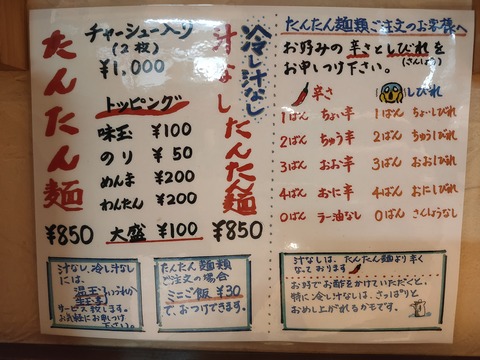 たんたん麺
¥850
チャーシュー入り
(2枚)
¥1,000
トッピング
味玉 ¥100
のり ¥50
めんま ¥200
わんたん ¥200
大盛 ¥100
冷し汁なし
汁なしたんたん麺
¥850
汁なし、冷し汁なし
には、
温玉
生玉
サービス致します。
お気軽にお申しつけ
下さい。
たんたん麺類
ご注文の場合
ミニご飯 ¥30
で、おつけできます。
たんたん麺類ご注文のお客様へ
お好みの辛さとしびれを
(さんしょう)
お申し付け下さい。
辛さ
1ばん ちょい辛
2ばん ちゅう辛
3ばん おお辛
4ばん おに辛
0ばん ラー油なし
しびれ
1ばん ちょいしびれ
2ばん ちゅうしびれ
3ばん おおしびれ
4ばん おにしびれ
0ばん さんしょうなし
汁なしは、たんたん麺より辛く
なっております
お好でお酢をかけていただくと、
特に冷し汁なしは、さっぱりと
おめし上がれるかもです。